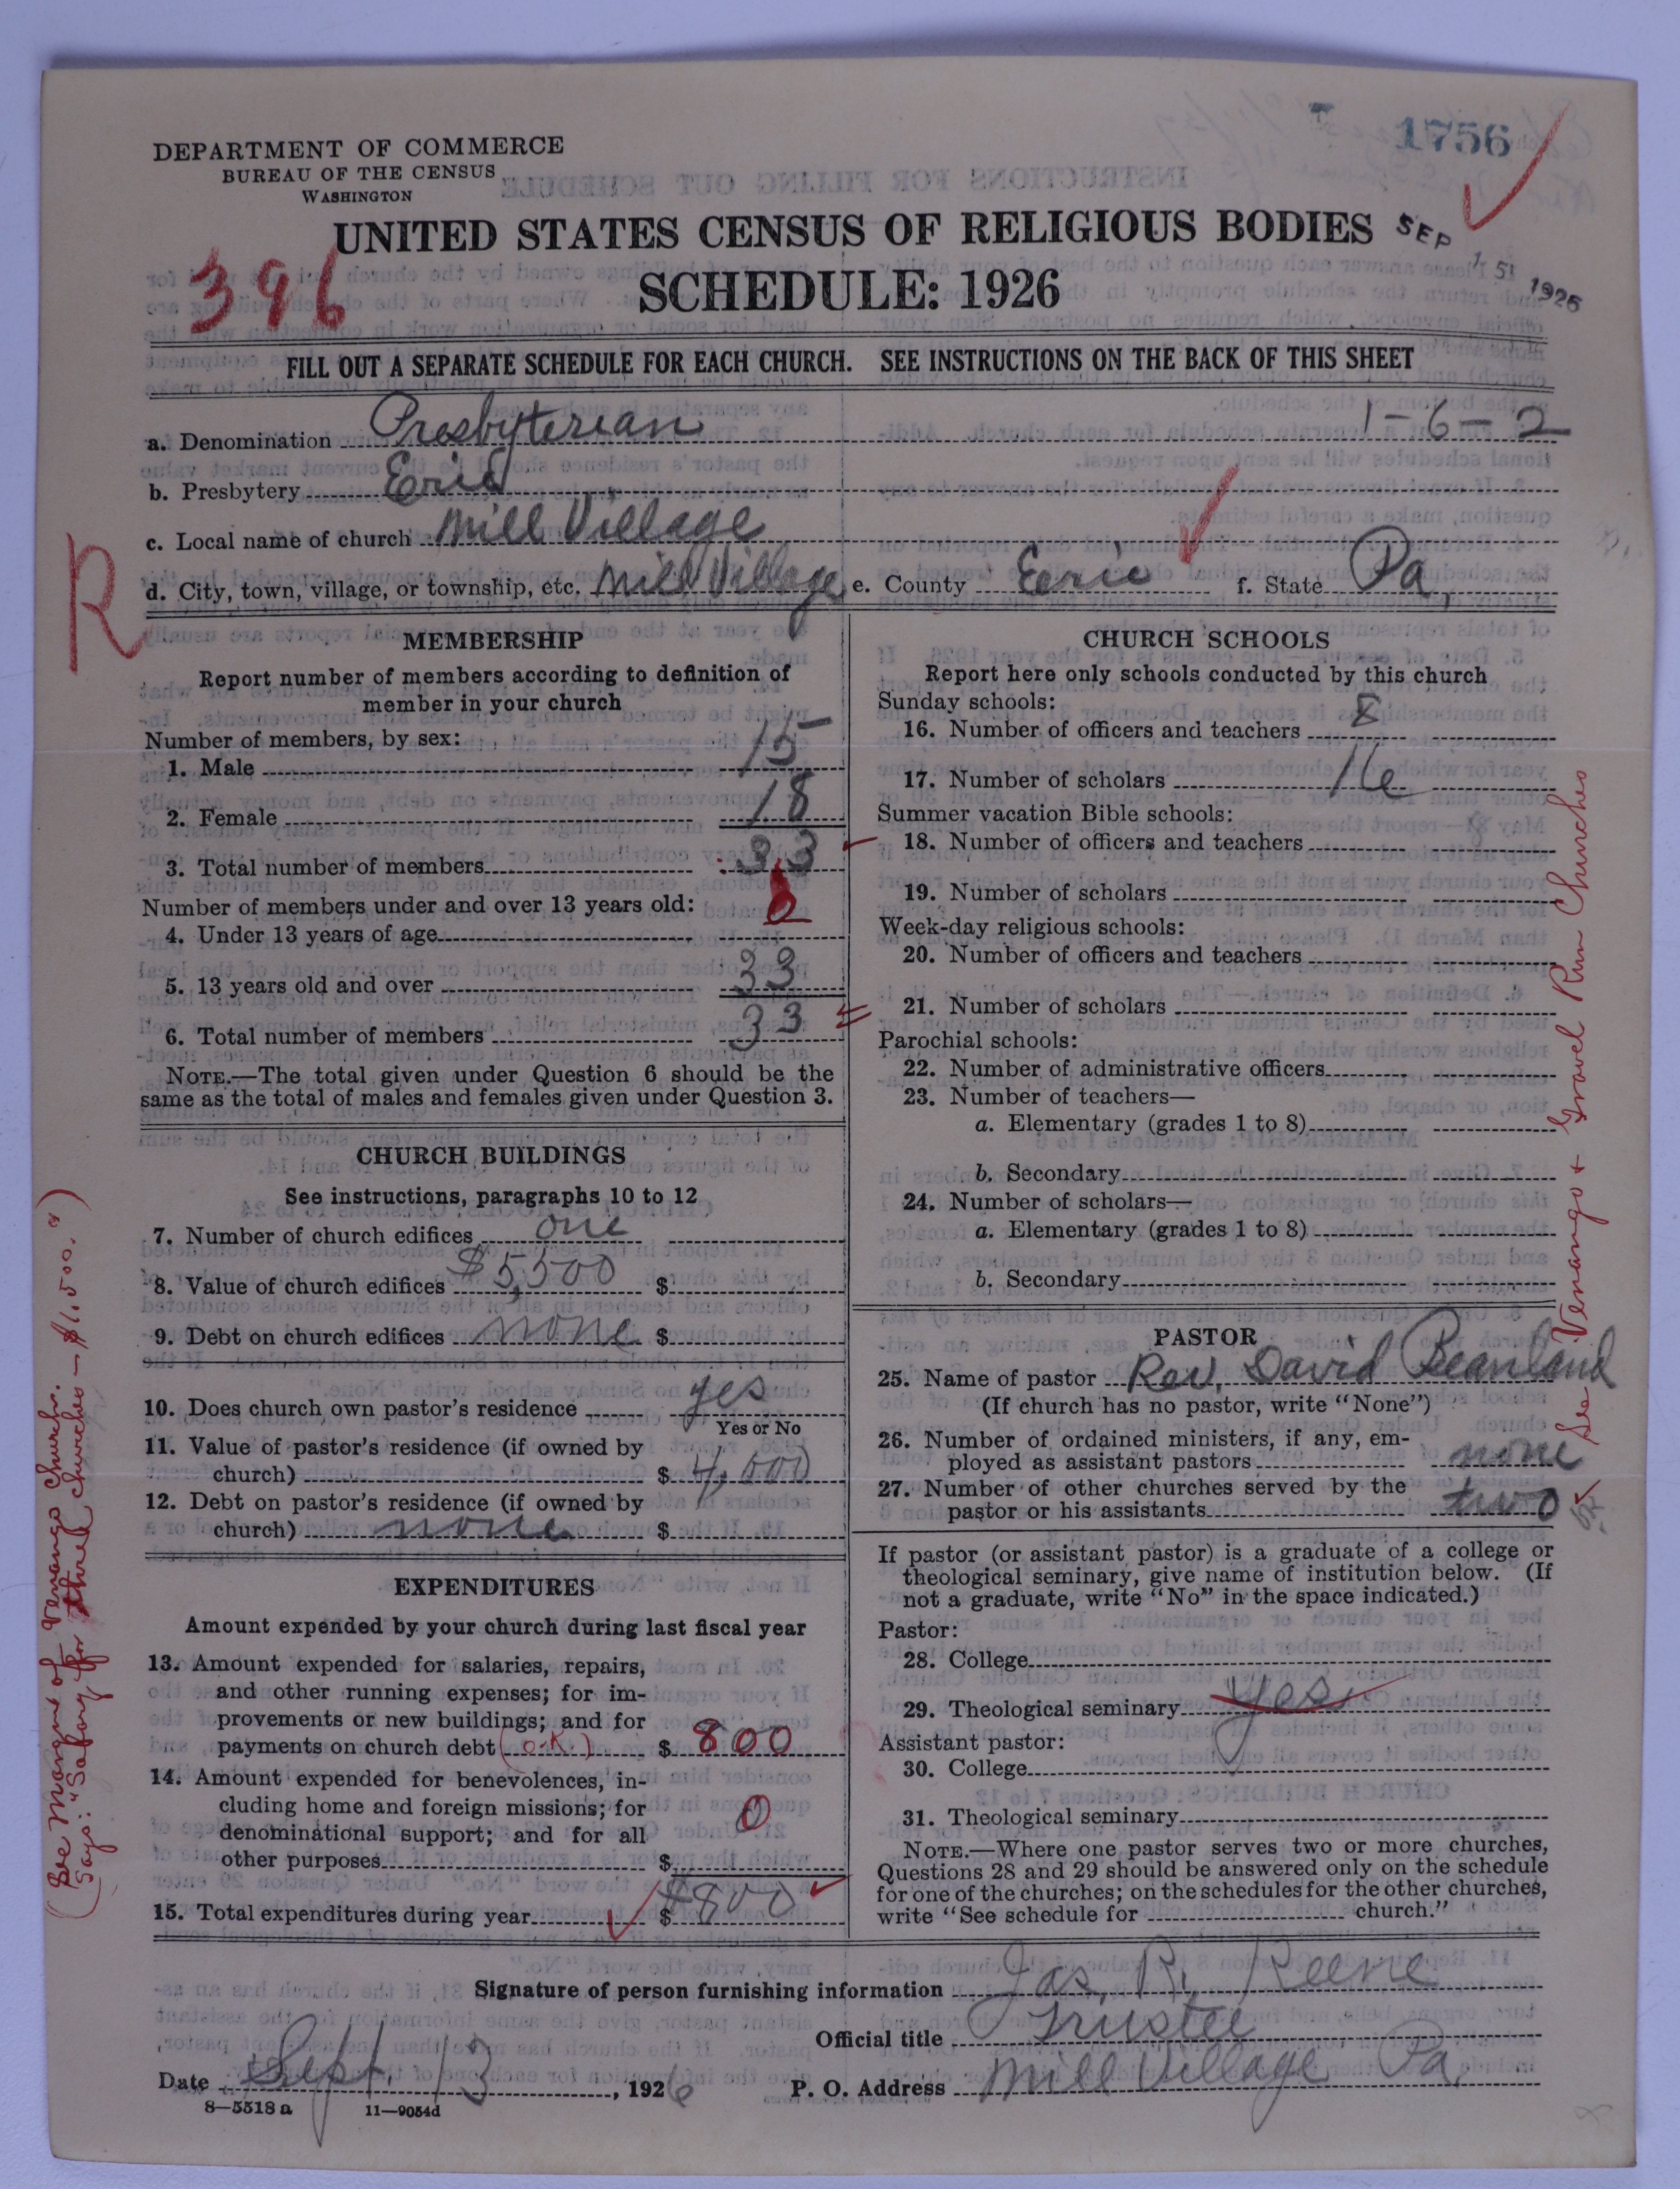 1756
DEPARTMENT OF COMMERCE
BUREAU OF THE CENSUS
WASHINGTON
UNITED STATES CENSUS OF RELIGIOUS BODIES
SEP 15 1926
396
SCHEDULE: 1926
FILL OUT A SEPARATE SCHEDULE FOR EACH CHURCH. SEE INSTRUCTIONS ON THE BACK OF THIS SHEET
a. Denomination Presbyterian 1-6-2
b. Presbytery Erie
c. Local name of church Mill Village
R
d. City, town, village, or township, etc. Mill Village e. County Eerie f. State Pa,
MEMBERSHIP
Report number of members according to definition of
member in your church
Number of members, by sex:
1. Male 15
2. Female 18
3. Total number of members 33
Number of members under and over 13 years old:
4. Under 13 years of age 0
5. 13 years old and over 33
6. Total number of members 33
NOTE.—The total given under Question 6 should be the
same as the total of males and females given under Question 3.
CHURCH BUILDINGS
See instructions, paragraphs 10 to 12
7. Number of church edifices one
8. Value of church edifices $5,500 $
9. Debt on church edifices none $
10. Does church own pastor's residence yes
Yes or No
11. Value of pastor's residence (if owned by
church) $ 4,000
12. Debt on pastor's residence (if owned by
church) none $
EXPENDITURES
Amount expended by your church during last fiscal year
13. Amount expended for salaries, repairs,
and other running expenses; for im-
provements or new buildings; and for
payments on church debt (O.K.) $ 800
14. Amount expended for benevolences, in-
cluding home and foreign missions; for
denominational support; and for all
other purposes $ 0
15. Total expenditures during year $ $800
(See Margin of Venango Church.
Says: "Salary for three churches — $1,500.")
CHURCH SCHOOLS
Report here only schools conducted by this church
Sunday schools:
16. Number of officers and teachers 8
17. Number of scholars 16
Summer vacation Bible schools:
18. Number of officers and teachers
19. Number of scholars
Week-day religious schools:
20. Number of officers and teachers
21. Number of scholars
Parochial schools:
22. Number of administrative officers
23. Number of teachers—
a. Elementary (grades 1 to 8)
b. Secondary
24. Number of scholars—
a. Elementary (grades 1 to 8)
b. Secondary
PASTOR
25. Name of pastor Rev. David Beanland
(If church has no pastor, write "None")
26. Number of ordained ministers, if any, em-
ployed as assistant pastors none
27. Number of other churches served by the
pastor or his assistants two
See Venango + Gravel Run Churches
If pastor (or assistant pastor) is a graduate of a college or
theological seminary, give name of institution below. (If
not a graduate, write "No" in the space indicated.)
Pastor:
28. College
29. Theological seminary yes
Assistant pastor:
30. College
31. Theological seminary
NOTE.—Where one pastor serves two or more churches,
Questions 28 and 29 should be answered only on the schedule
for one of the churches; on the schedules for the other churches,
write "See schedule for church."
Signature of person furnishing information Jas. R. Reene
Official title Trustee
Date Sept. 13, 1926 P. O. Address Mill Village Pa,
8—5518 a 11—9054d